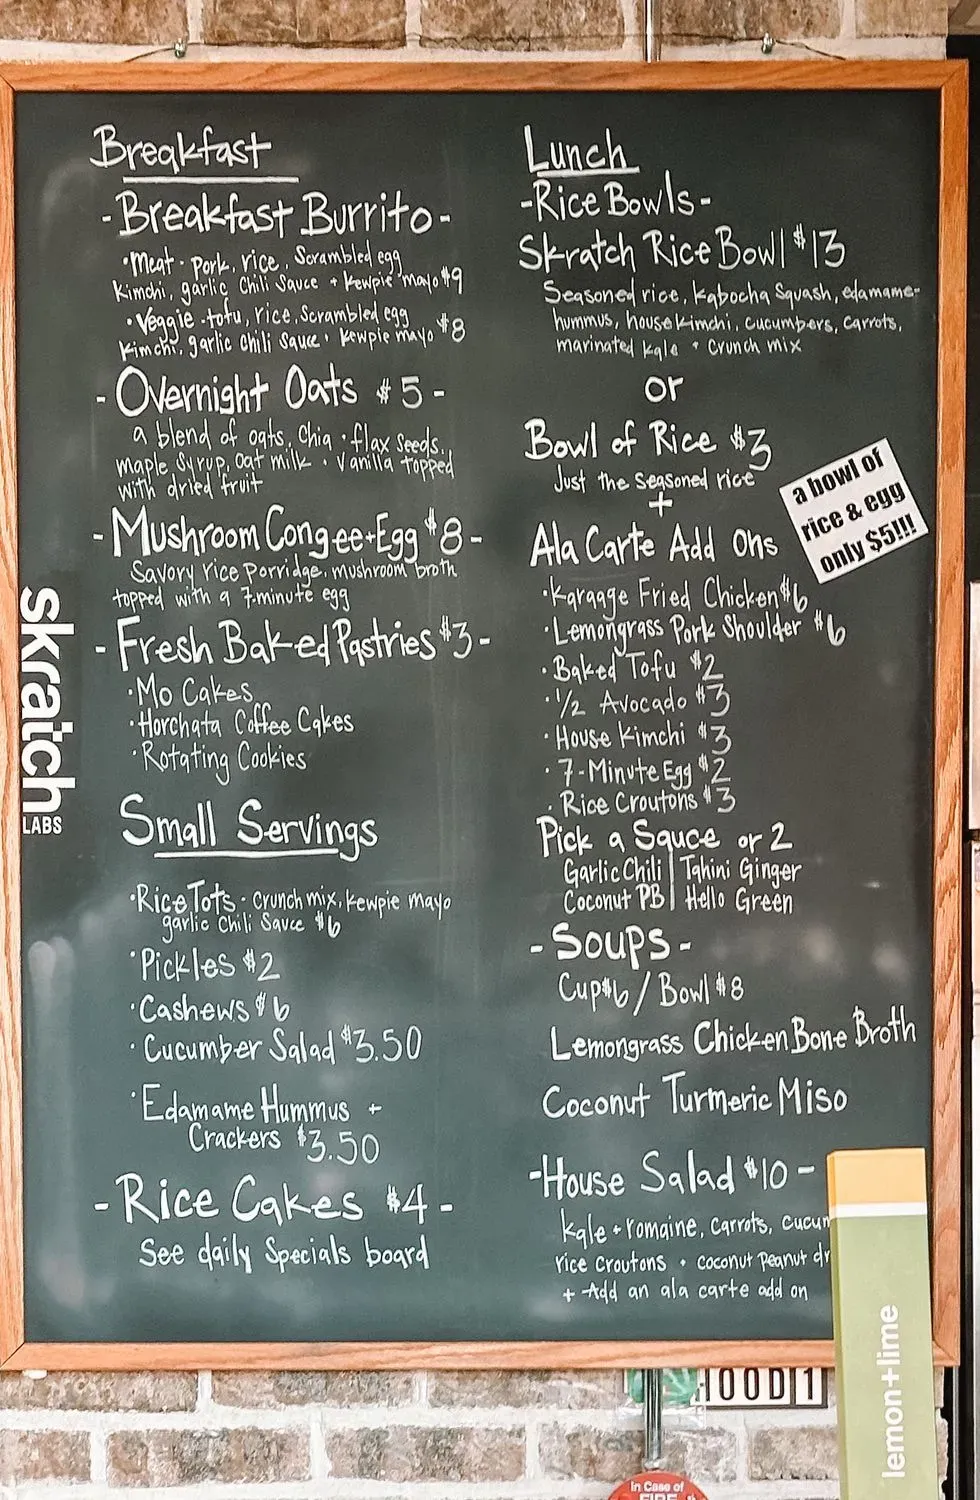 Breakfast
-Breakfast Burrito-
•Meat - pork, rice, Scrambled egg
Kimchi, garlic Chili Sauce + kewpie mayo $9
•Veggie - tofu, rice, Scrambled egg
Kimchi, garlic chili Sauce • kewpie mayo $8
- Overnight Oats $5 -
a blend of oats, Chia • flax seeds,
maple Syrup, oat milk • Vanilla topped
with dried fruit
-Mushroom Congee+Egg $8-
Savory rice porridge, mushroom broth
topped with a 7-minute egg
- Fresh Baked Pastries $3-
•Mo Cakes
•Horchata Coffee Cakes
•Rotating Cookies
Small Servings
•Rice Tots - Crunch mix, kewpie mayo
garlic Chili Sauce $6
•Pickles $2
•Cashews $6
•Cucumber Salad $3.50
•Edamame Hummus +
Crackers $3.50
- Rice Cakes $4 -
See daily Specials board
Lunch
-Rice Bowls-
Skratch Rice Bowl $13
Seasoned rice, kabocha Squash, edamame-
hummus, house kimchi, cucumbers, carrots,
marinated kale + crunch mix
or
Bowl of Rice $3
Just the Seasoned rice
+
Ala Carte Add Ons
•Karaage Fried Chicken $6
•Lemongrass Pork Shoulder $6
•Baked Tofu $2
•1/2 Avocado $3
•House Kimchi $3
•7-Minute Egg $2
•Rice Croutons $3
Pick a Sauce or 2
Garlic Chili | Tahini Ginger
Coconut PB | Hello Green
- Soups -
Cup $6 / Bowl $8
Lemongrass Chicken Bone Broth
Coconut Turmeric Miso
-House Salad $10 -
kale + romaine, carrots, cucum
rice croutons • coconut peanut dr
+ Add an ala carte add on
a bowl of
rice & egg
only $5!!!
skratch
LABS
lemon+lime
In Case of
FIRE